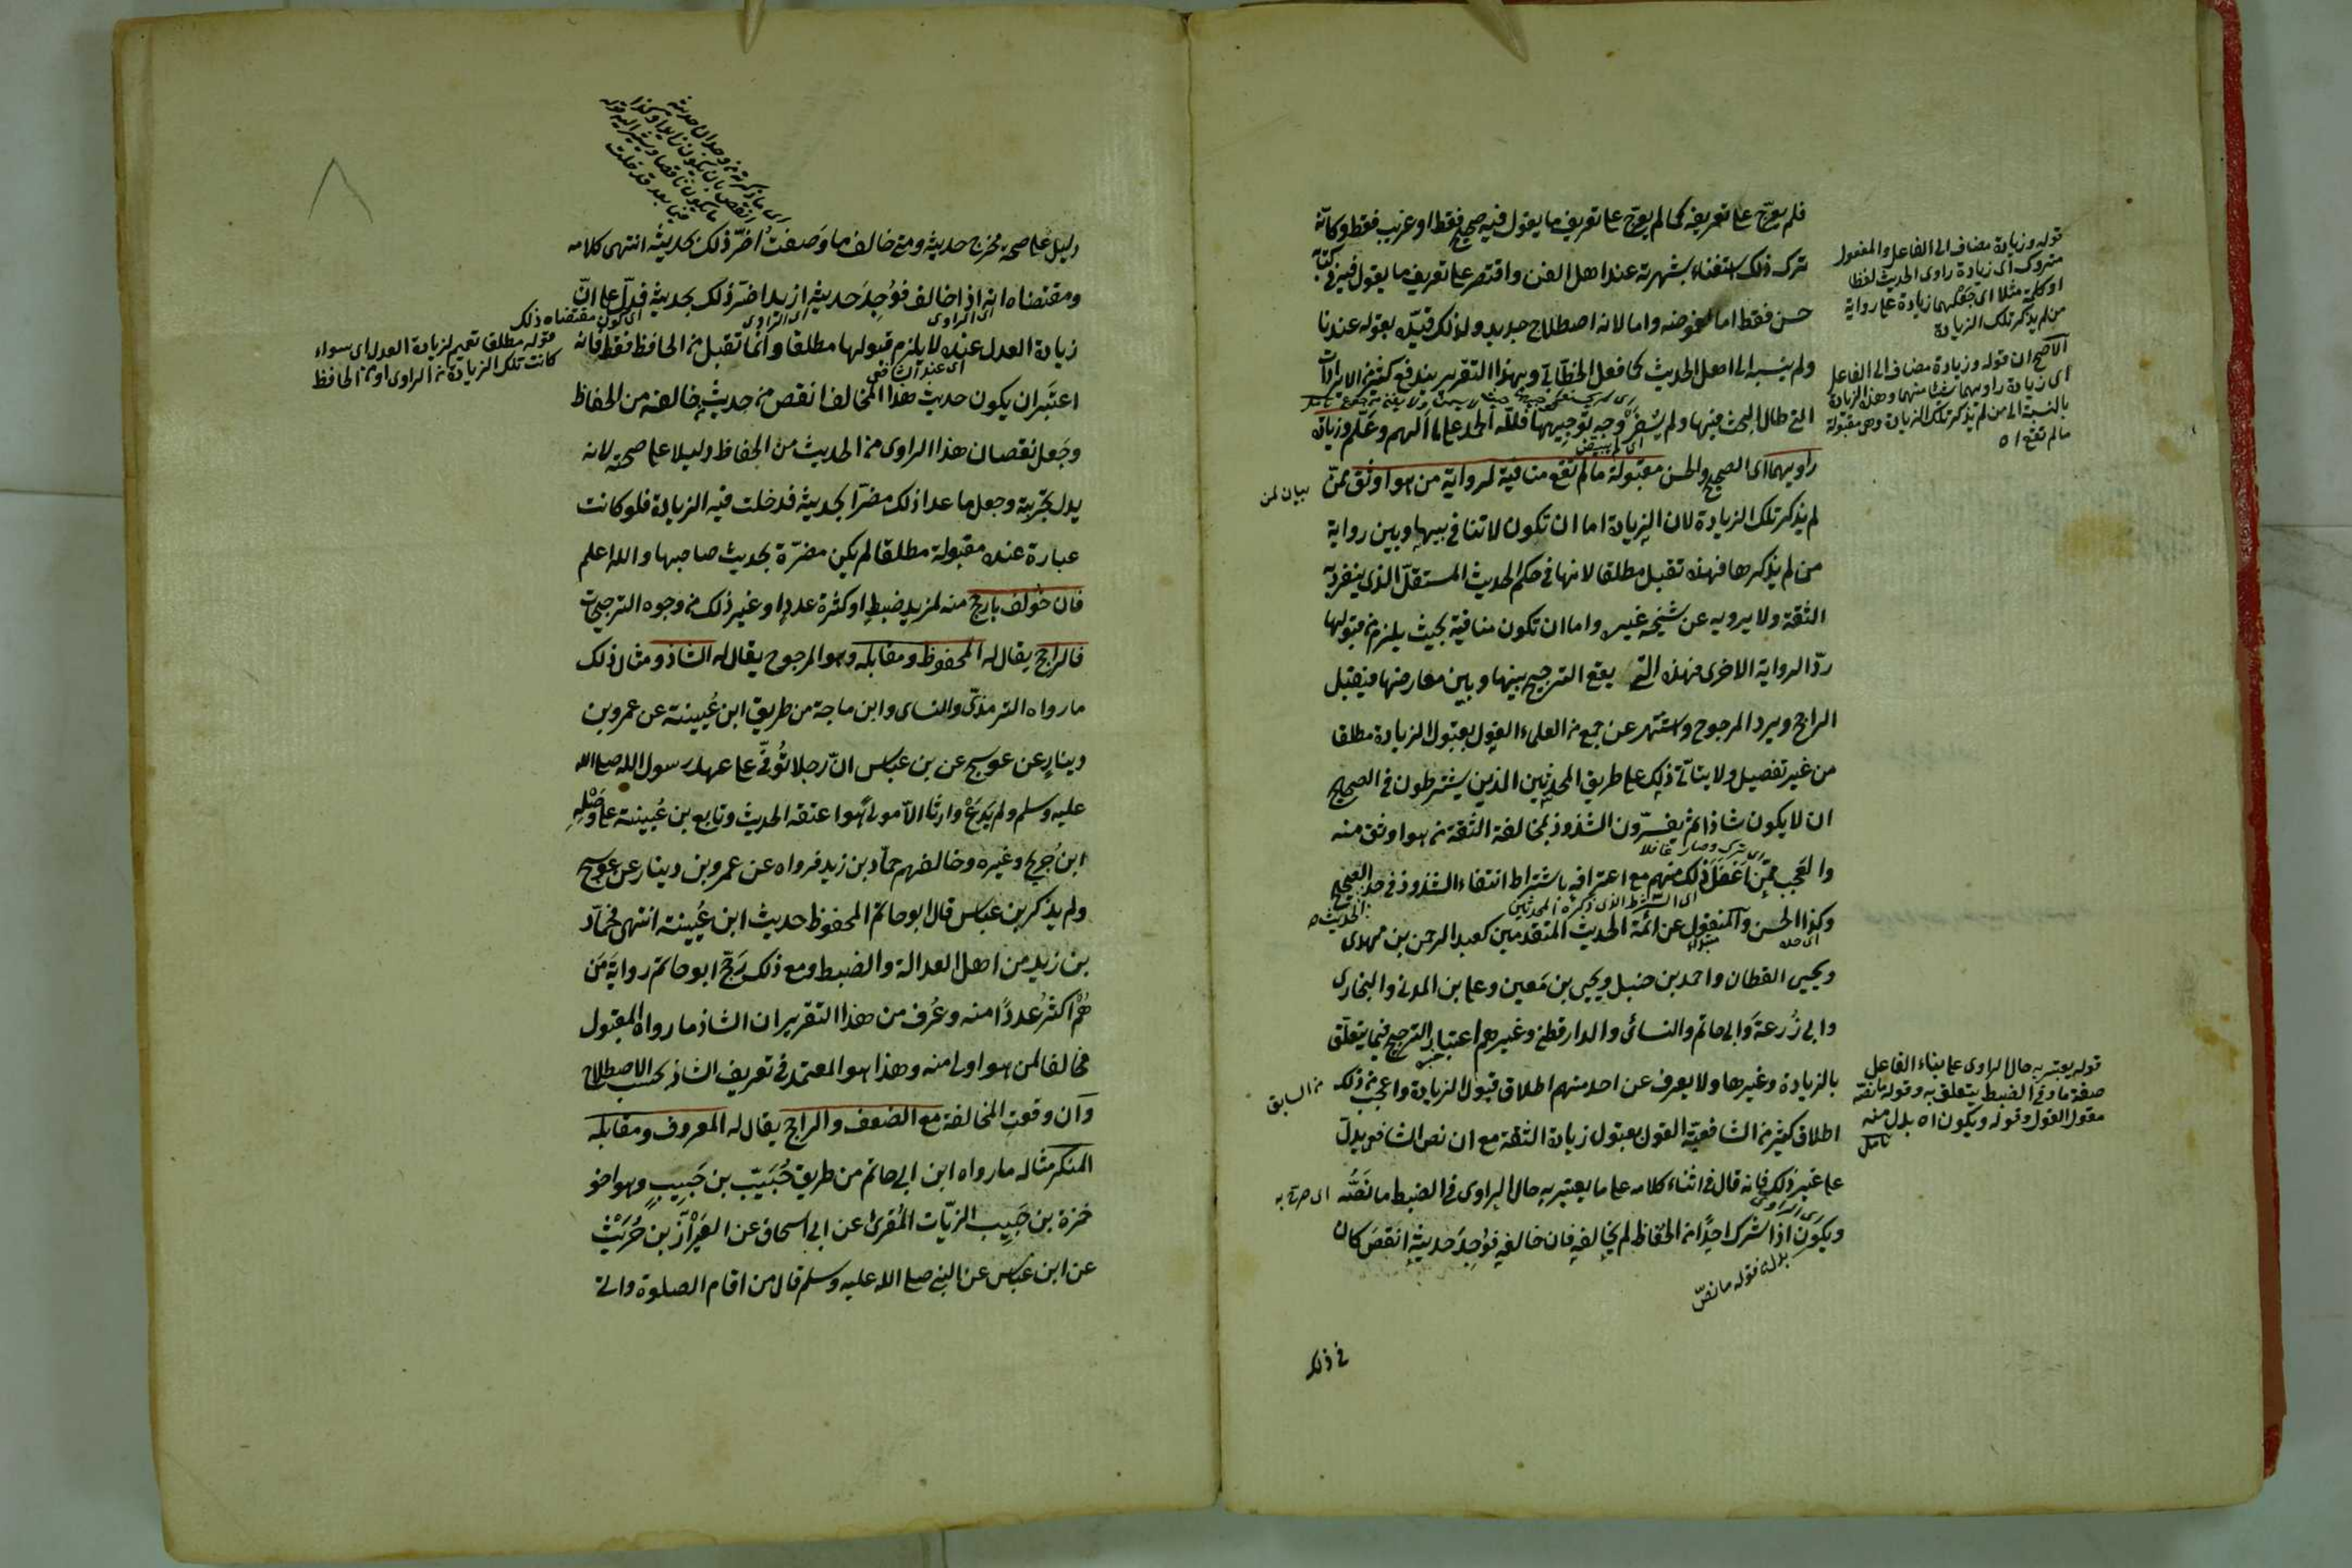 فلم يعرّج على تعريفه كما لم يعرّج على تعريف ما يقول فيه صحيح فقط او غريب فقط وكانّه
ترك ذلك استغناء بشهرته عند اهل الفن واقتصر على تعريف ما يقول فيه في كتابه
حسن فقط اما لغموضه واما لانه اصطلاح جديد ولذلك قيّده بقوله عندنا
ولم ينسبه الى اهل الحديث كما فعل الخطّابي وبهذا التقرير يندفع كثير من الايرادات
التي طال البحث فيها ولم يُسْفِرْ وجه توجيهها فلله الحمد على ما الهم وعَلّم وزيادة
اى لم يبيّض
راويهما اى الصحيح والحسن مقبولة ما لم تقع منافية لرواية من هو اوثق ممّن
بيان لمن
لم يذكر تلك الزيادة لان الزيادة اما ان تكون لا تنافي بينها وبين رواية
من لم يذكرها فهذه تقبل مطلقا لانها في حكم الحديث المستقلّ الذى ينفرد به
الثقة ولا يرويه عن شيخه غيره واما ان تكون منافية بحيث يلزم من قبولها
ردّ الرواية الاخرى فهذه التي يقع الترجيح بينها وبين معارضها فيقبل
الراجح ويرد المرجوح واشتهر عن جمع من العلماء القول بقبول الزيادة مطلقا
من غير تفصيل ولا يتأتى ذلك على طريق المحدثين الذين يشترطون في الصحيح
ان لا يكون شاذا ثم يفسّرون الشذوذ بمخالفة الثقة من هو اوثق منه
اى ترك وصار غافلا
والعَجب ممّن اَغفَلَ ذلك منهم مع اعترافه باشتراط انتفاء الشذوذ في حد الحديث الصحيح
اى الشرط الذى ذكره المحدثين
وكذا الحسن والمنقول عن ائمّة الحديث المتقدمين كعبد الرحمن بن مهدى
اى حده
مبتدأ
ويحيى القطان واحمد بن حنبل ويحيى بن مَعين وعلى بن المدني والبخارى
وابى زُرعة وابى حاتم والنسائى والدارقطنى وغيرهم اعتبار الترجيح فيما يتعلّق
خبره
بالزيادة وغيرها ولا يعرف عن احد منهم اطلاق قبول الزيادة واعجب من ذلك
من السابق
اطلاق كثير من الشافعيّة القول بقبول زيادة الثقة مع ان نص الشافعى يدلّ
على غير ذلك فانه قال في اثناء كلامه على ما يعتبر به حال الراوى في الضبط ما نَصُّه
اى صرّح به
اى الراوى
ويكون اذا اشرك احدًا من الحفّاظ لم يخالفه فان خالفه فوُجِدَ حديثه انقصَ كان
بدل من قوله ما نصّ
في ذلك
قوله وزيادة مضاف الى الفاعل والمفعول
متروك اى زيادة راوى الحديث لفظا
او كلمة مثلا اى حكمهما زيادة على رواية
من لم يذكر تلك الزيادة
الاصح ان قوله وزيادة مضاف الى الفاعل
اى زيادة راويهما شيئا منهما وهذه الزيادة
بالنسبة الى من لم يذكر تلك الزيادة وهى مقبولة
ما لم تقع اه
قوله يعتبر به حال الراوى على بناء الفاعل
صفة ما وفي الضبط يتعلق به وقوله ما نصّه
مقول القول وقوله ويكون اه بدل منه
تأمل
اى ما ذكرته من وجدان حديثه
انقص بان يكون زايدا
ما يكون ناقصا ويشير اليه قوله
فيما بعد فدخلت
دليل على صحّة مخرج حديثه ومتى خالف ما وَصفتُ اضَرّ ذلك بحديثه انتهى كلامه
ومقتضاه انه اذا خالف فوُجِدَ حديثه ازيد اضرّ ذلك بحديثه فدلّ على انّ
اى الراوى
اى الراوى
اى كون مقتضاه ذلك
زيادة العدل عنده لا يلزم قبولها مطلقا وانّما تقبل من الحافظ فقط فانه
اى عند الشافعى
قوله مطلقا تعميم لزيادة العدل اى سواء
كانت تلك الزيادة من الراوى او من الحافظ
اعتَبَر ان يكون حديث هذا المخالف انقص من حديث من خالفه من الحفاظ
وجَعل نقصان هذا الراوى من الحديث من الحفاظ دليلا على صحته لانه
يدل بتحرّيه وجعل ما عدا ذلك مضرّا بحديثه فدخلت فيه الزيادة فلو كانت
عبارة عنده مقبولة مطلقا لم يكن مضرّة بحديث صاحبها والله اعلم
فان خُولف بارجح منه لمزيد ضبطٍ او كثرة عددٍ او غير ذلك من وجوه الترجيحات
فالراجح يقال له المحفوظ ومقابله وهو المرجوح يقال له الشاذ ومثال ذلك
ما رواه الترمذىّ والنساى وابن ماجة من طريق ابن عُيينة عن عمرو بن
دينارٍ عن عوسج عن بن عباس انّ رجلا تُوُفّى على عهد رسول الله صلى الله
عليه وسلم ولم يَدَعْ وارثا الاّ مولًى هو اعتقه الحديث وتابع بن عُيينة على وَصْلِهِ
ابن جُريج وغيره وخالفهم حمّاد بن زيد فرواه عن عمرو بن دينار عن عوسج
ولم يذكر بن عباس قال ابو حاتم المحفوظ حديث ابن عُيينة انتهى فحمّاد
بن زيد من اهل العدالة والضبط ومع ذلك رَجّح ابو حاتم روايةَ مَن
هُمْ اكثرُ عددًا منه وعُرف من هذا التقرير ان الشاذ ما رواه المقبول
مخالفا لمن هو اولى منه وهذا هو المعتمد في تعريف الشاذ بحسب الاصطلاح
وان وقعت المخالفة مع الضعف والراجح يقال له المعروف ومقابله
المنكر مثاله ما رواه ابن ابى حاتم من طريق حُبَيّب بن حَبيبٍ وهو اخو
حمزة بن حَبيب الزيّات المُقرئ عن ابى اسحاق عن العَيْزار بن حُرَيْث
عن ابن عباس عن النبى صلى الله عليه وسلم قال من اقام الصلوة واتى